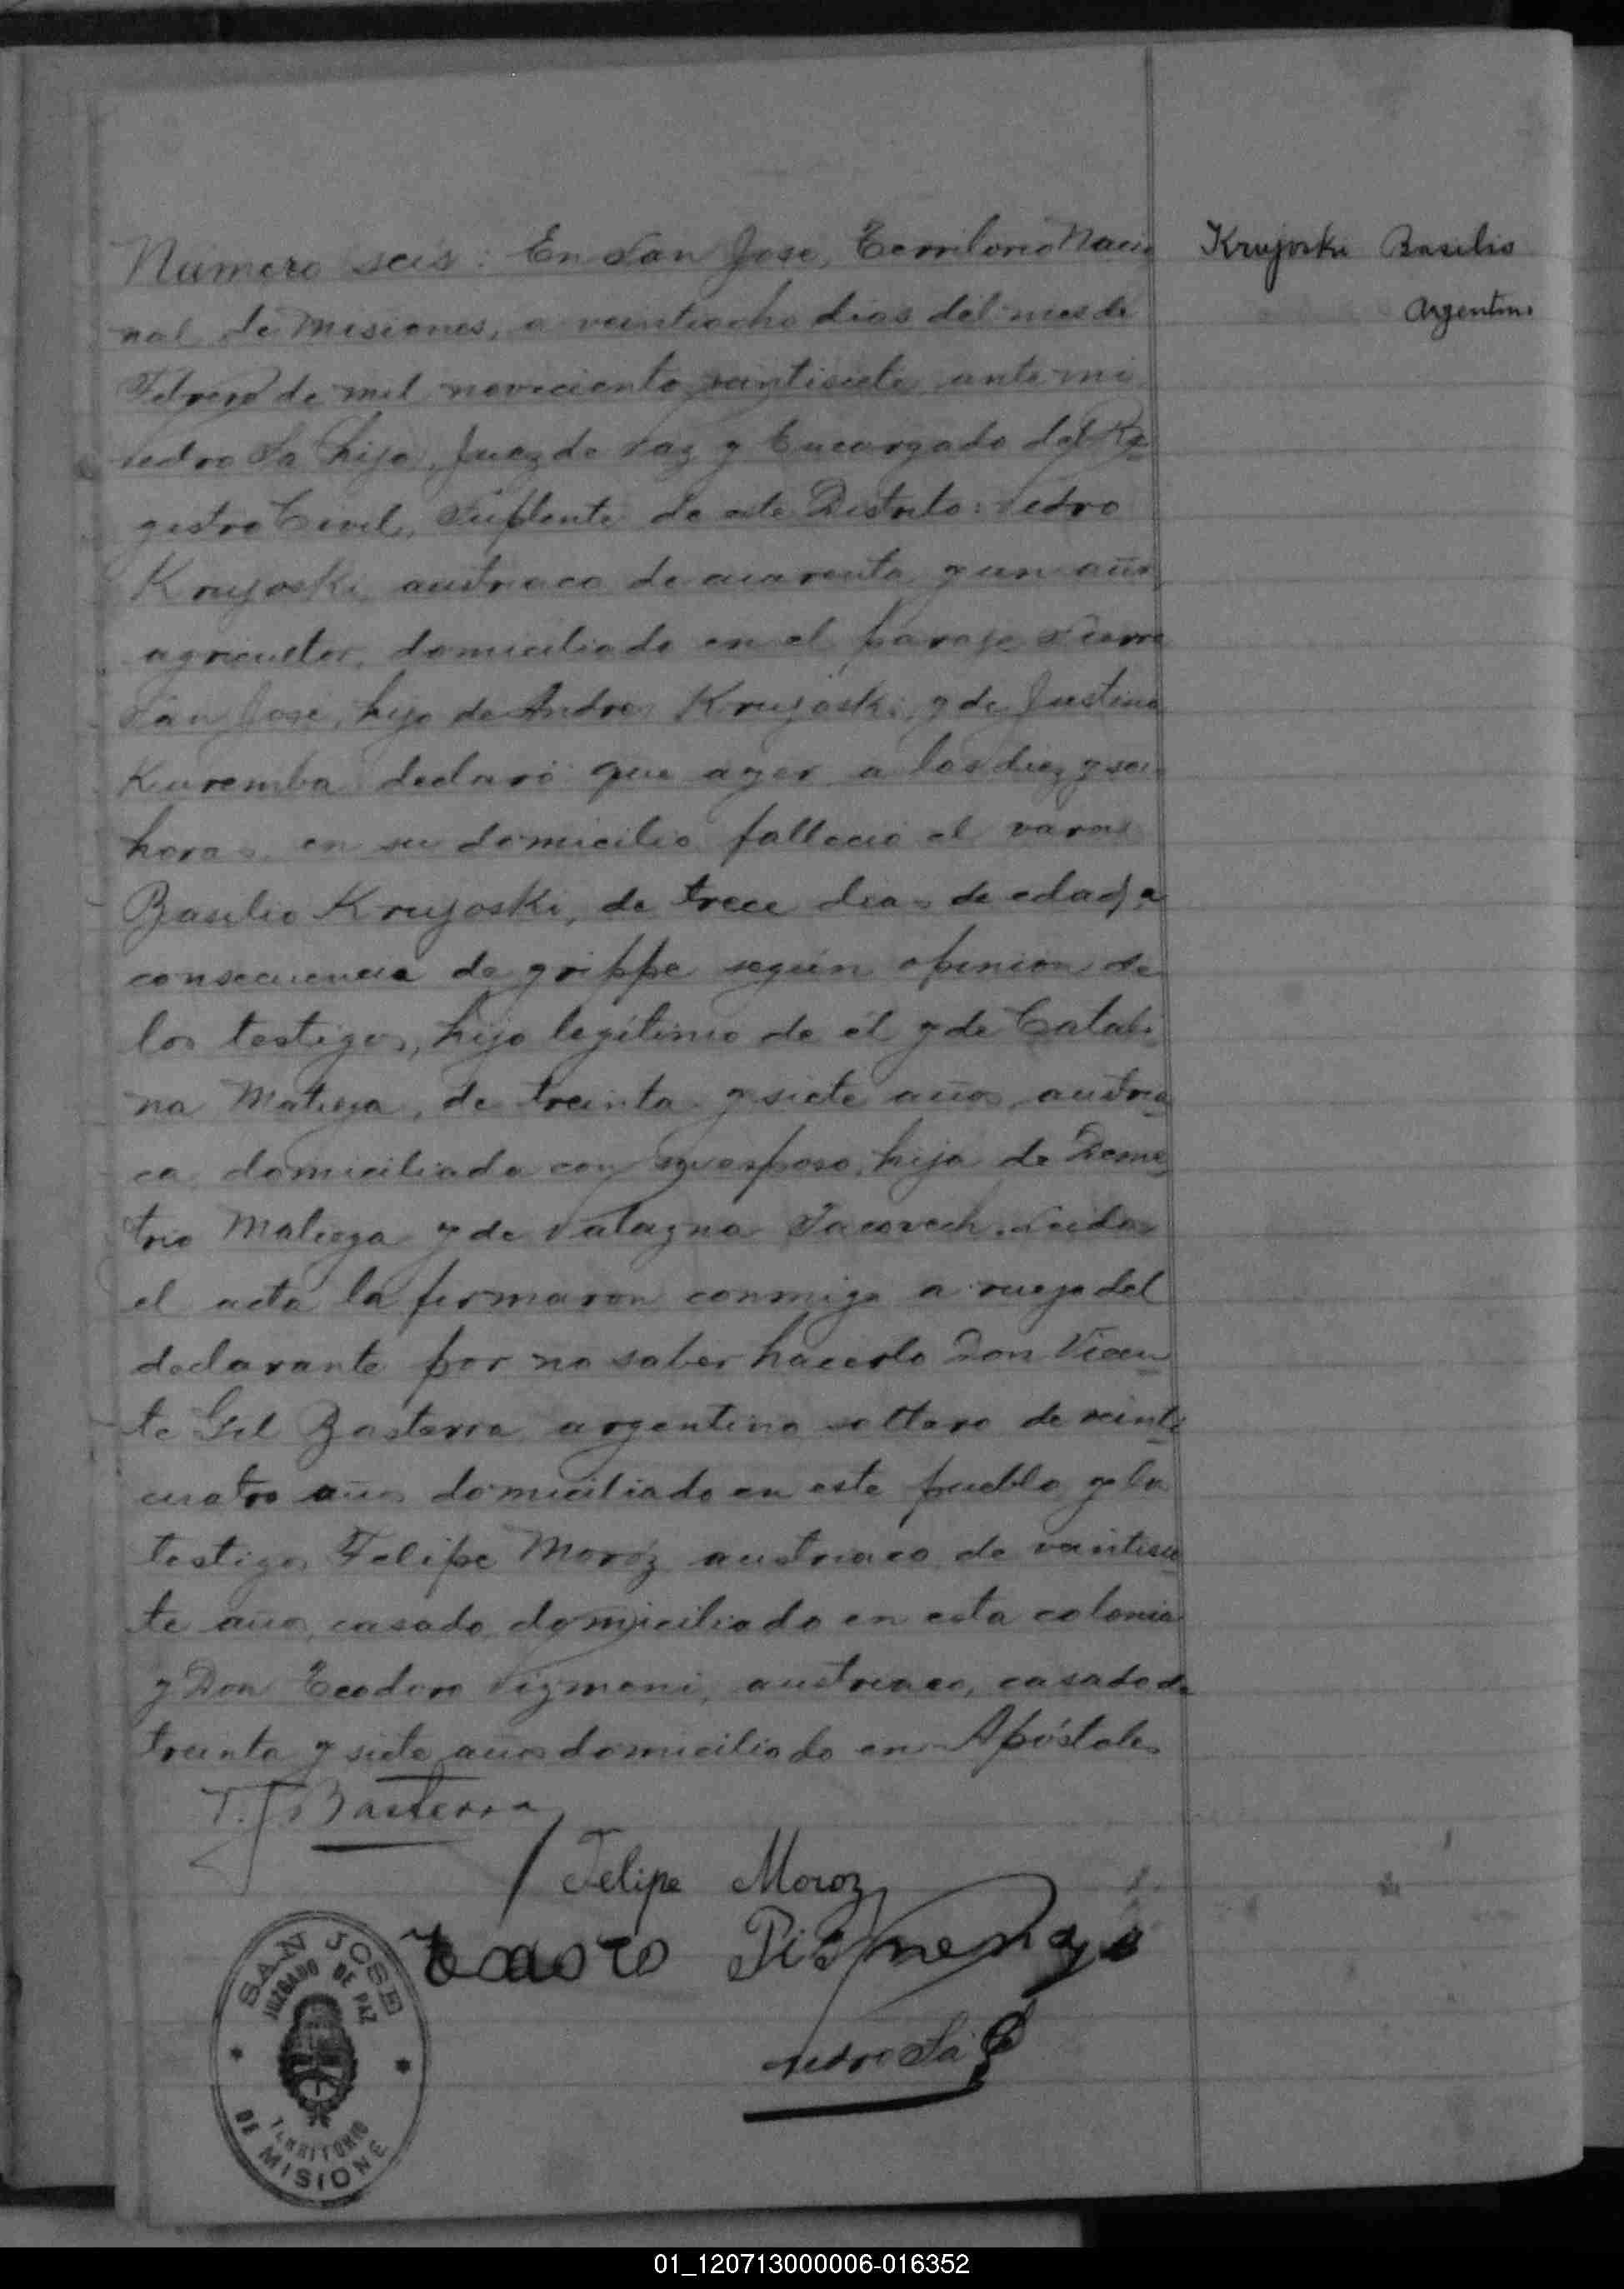 Número seis: En San José, Territorio Nacio
nal de Misiones, a veintiocho dias del mes de
Febrero de mil noveciento veintisiete, ante mi
Pedro Sa hijo, Juez de Paz y Encargado del Re
gistro Civil, Suplente de este Distrito: Pedro
Krujoski, austriaco de cuarenta y un años
agricultor, domiciliado en el paraje Sierra
San José, hijo de Andres Krujoski, y de Justina
Kuremba declaró que ayer a las diez y seis
horas en su domicilio falleció el varon
Basilio Krujoski, de trece dias de edad, a
consecuencia de grippe según opinion de
los testigos, hijo legítimo de él y de Catali
na Matiega, de treinta y siete años, austria
ca domiciliada con su esposo, hija de Deme
trio Matiega y de Palagna. Leida
el acta la firmaron conmigo a ruego del
declarante por no saber hacerlo Don Vicen
te Gil Basterra argentino soltero de veinti
cuatro años domiciliado en este pueblo y los
testigos Felipe Moroz austriaco de veintisie
te años, casado domiciliado en esta colonia
y Don Teodoro Pizmeni, austriaco, casado de
treinta y siete años domiciliado en Apóstoles
Basterra
Felipe Moroz
Pedro Sá
Krujoski Basilio
Argentino
SAN JOSE
JUZGADO DE PAZ
TERRITORIO
DE MISIONE
01_120713000006-016352